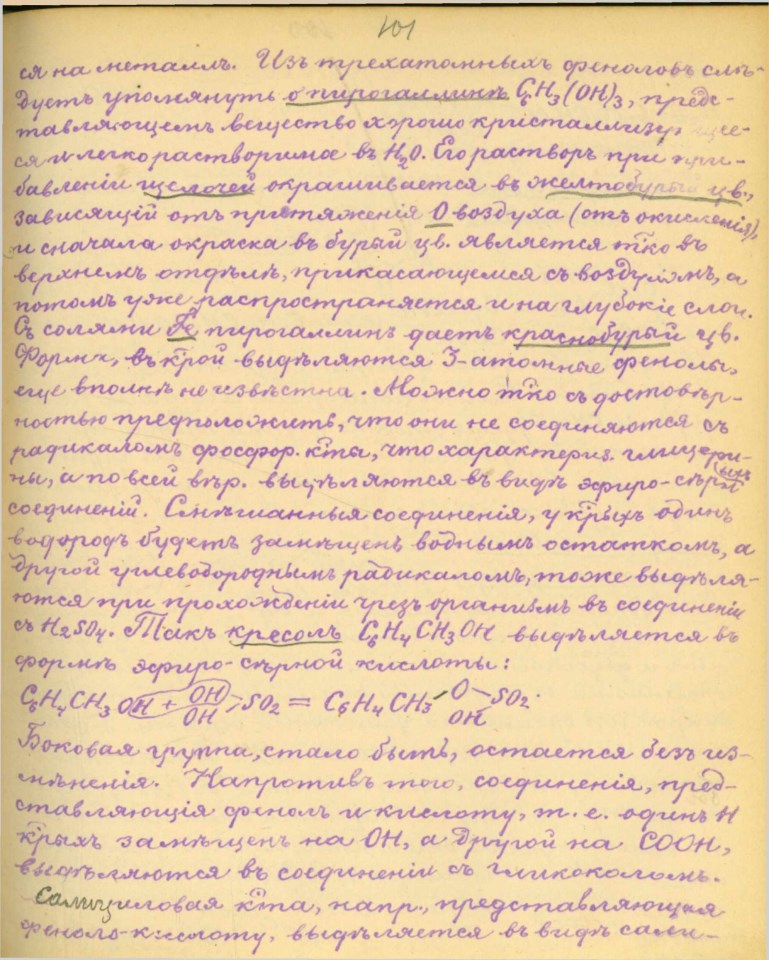 101
ся на металлъ. Изъ трехатомныхъ феноловъ слѣ-
дуетъ упомянуть о пирогаллинѣ C6H3(OH)3, предс-
тавляющемъ вещество хорошо кристаллизу щее-
ся и легко растворима въ H2O. Его растворъ при при-
бавленіи щелочей окрашивается въ желтобурый цв.,
зависящій отъ притяженія O воздуха (отъ окисленія),
и сначала окраска въ бурый цв. является тко въ
верхнемъ отдѣлѣ, прикасающемся съ воздухомъ, а
потомъ уже распространяется и на глубокіе слои.
Съ солями Fe пирогаллинъ даетъ краснобурый цв.
Форма, въ крой выдѣляются 3-атомные фенолы,
еще вполнѣ не извѣстна. Можно тко съ достовѣр-
ностью предположить, что они не соединяются съ
радикаломъ фосфор. кты, что характериз. глицери-
ны, а по всей вѣр. выдѣляются въ видѣ эфиро-сѣрныхъ
соединеній. Смѣшанныя соединенія, у крыхъ одинъ
водородъ будетъ замѣщенъ воднымъ остаткомъ, а
другой углеводороднымъ радикаломъ, тоже выдѣля-
ются при прохожденіи чрезъ организмъ въ соединеніи
съ H2SO4. Такъ кресолъ C6H4CH3OH выдѣляется въ
формѣ эфиро-сѣрной кислоты:
C6H4CH3 OH + OH OH SO2 = C6H4CH3 O OH SO2.
Боковая группа, стало быть, остается безъ из-
мѣненія. Напротивъ того, соединенія, пред-
ставляющія фенолъ и кислоту, т. е. одинъ H
крыхъ замѣщенъ на OH, а другой на COOH,
выдѣляются въ соединеніи съ гликоколомъ.
Салициловая кта, напр., представляющая
феноло-кислоту, выдѣляется въ видѣ сали-